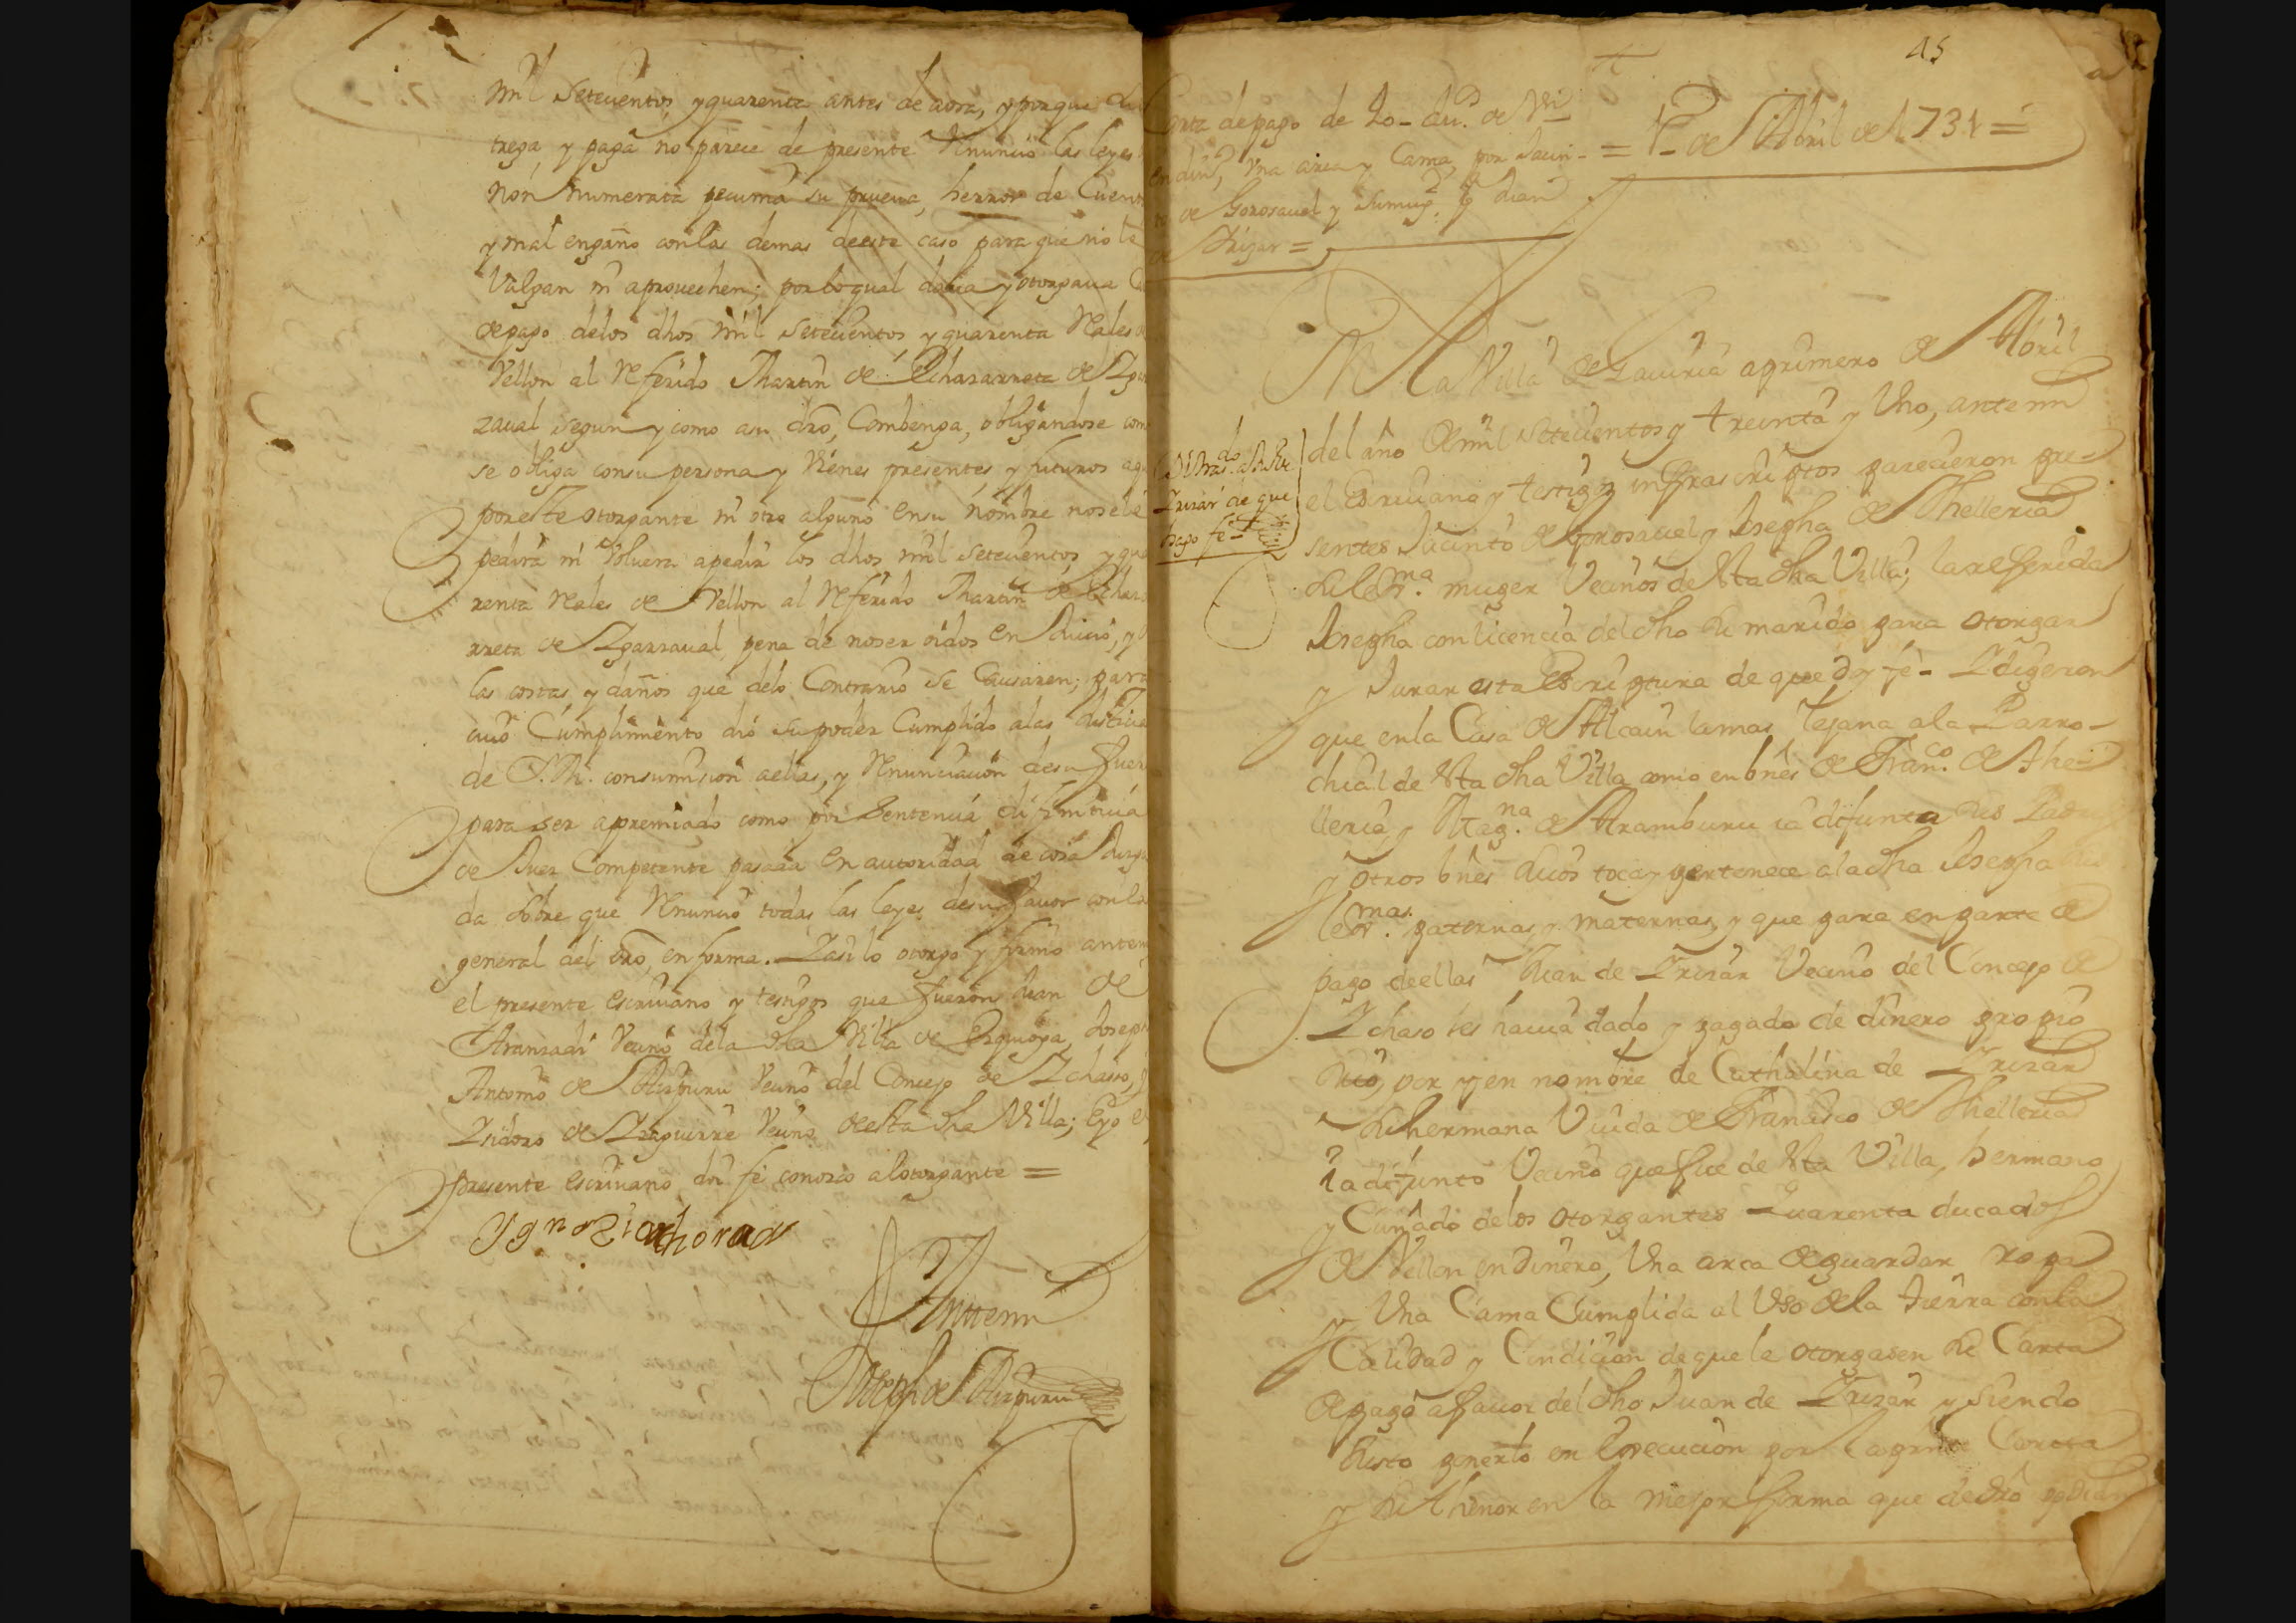 mil setecientos, y quarenta antes de aora, y porque
trega, y paga no parece de presente Renuncio las leyes
non numerata pecunia su prueva, herror de Cuen
y mal engaño con las demas de este caso para que no le
Valgan ni aprouechen; por lo qual daba y otorgaua
de pago delos dhos mil setecientos y quarenta Reales
Vellon al Referido Martin de Echazarreta de Ygar
zaual segun y como a su dro, Combenga, obligandose com
se obliga con su persona y Vienes presentes, y futuros aq
por este otorgante ni otro alguno en su nombre no se le
pedira ni Voluera apedir los dhos mil setecientos, y qua
renta Reales de Vellon al Referido Martin de Echaza
rreta de Ygarzaual, pena de no ser oidos en Juicio, y
las costas, y daños que delo Contrario se Causaren; para
cuio Cumplimiento dio su poder Cumplido alas Justicias
de S. M. con sumision aellas, y Renunciacion de su fuero
para ser apremiado como por sentencia difinitiua
de Juez Competente pasada en autoridad de cosa Juzga
da sobre que Renuncio todas las leyes de su fauor con la
general del dro, en forma. Y asi lo otorgo y firmo antem
el presente escriuano y testigos que fueron Juan de
Aranzadi Vecino dela dha Villa de Ezquioga, Joseph
Antonio de Aizpuru Vecino del Concejo de Ychasso, y
Ysidoro de Yzaguirre Vecino de esta dha Villa; Eyo el
presente escriuano doi fe conozco al otorgante =
Antemi
Joseph de Aizpuru
45
Carta de pago de 40 du.s de Vn
en din.o, Vna arca y Cama, por Jacin-
to de Gorosauel y su mug.r a Juan
de Yrizar =
= 1º de Abril de 1731 =
En la Villa de Gauiria a primero de Abril
del año de mil setecientos y treinta y Uno, antemi
el Escriuano y testigos infrascriptos parecieron pre-
sentes Jacinto de Gorosauel y Josepha de Thelleria
su lex.ma muger Vecinos de esta dha Villa; la referida
Josepha con licencia del dho su marido para otorgar
y Jurar esta escriptura de que doy fe- Y digeron
que en la Casa de Alcain la mas lejana a la Parro-
chial de esta dha Villa como en bnes de Fran.co de The-
lleria, y Mag.na de Aramburu ia difunta sus Padres
y otros bnes suios toca y pertenece ala dha Josepha sus
lex.mas paternas y maternas, y que para en parte de
pago de ellas Juan de Yrizar Vecino del Concejo de
Ychaso les hauia dado y pagado de dinero propio
suio, por y en nombre de Cathalina de Yrizar
su hermana Viuda de Francisco de Thelleria
ia difunto Vecino que fue de esta Villa, hermano
y Cuñado delos otorgantes quarenta ducados
de Vellon en dinero, Una arca de guardar ropa
y Una Cama Cumplida al Uso dela tierra con la
Calidad y Condicion de que le otorgasen su Carta
de pago a fauor del dho Juan de Yrizar y siendo
Justo ponerlo en Execucion por la pnte Carta
y su thenor en la mejor forma que de dro podian
Yrizar de que
hago fe